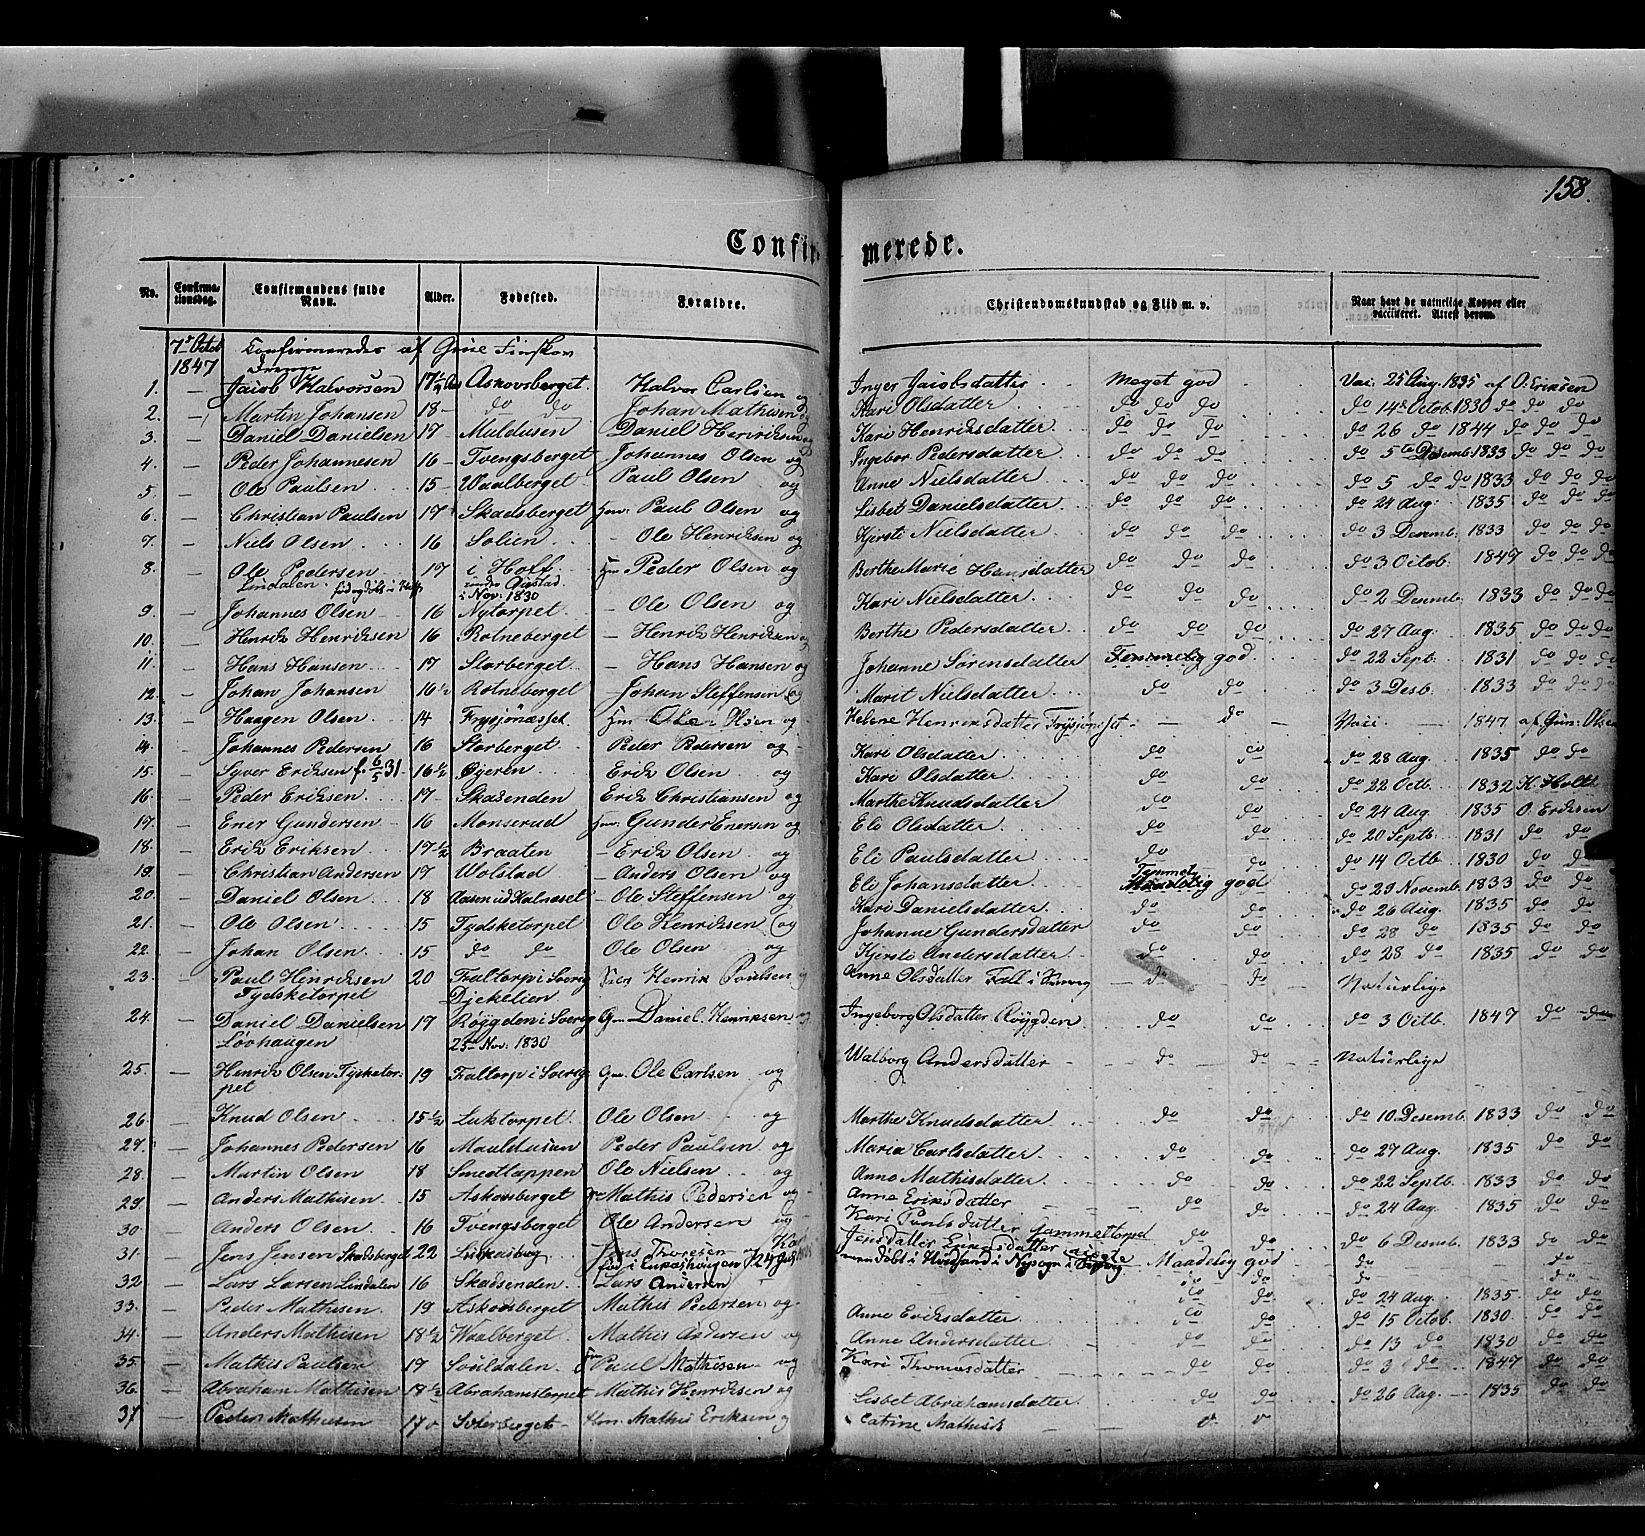 158.
Confir- merede.
No. Confirmationsdag. Confirmandens fulde Navn. Alder. Fødested. Forældre. Christendomskundskab og Flid m. v. Naar havt de naturlige Kopper eller vaccineret. Attest derom.
7de Octob 1847 Confirmeredes af Grue Finskov
Drenge
1. — Jacob Halvorsen 17½ Askovsberget. Halvor Carlsen og Inger Jacobsdatter Meget god Vac. 25 Aug. 1835 af O. Eriksen
2. — Martin Johansen 18 do do Johan Mathisen og Kari Olsdatter do do do do 14de Octob. 1830 do do do
3. — Daniel Danielsen 17 Muldusen Daniel Henriksen og Kari Henriksdatter do do do do 26 do 1844 do do do
4. — Peder Johannesen 16 Tvengsberget Johannes Olsen og Ingebor Pedersdatter do do do do 5te Desemb. 1833 do do do
5. — Ole Paulsen 15 Waalberget Paul Olsen og Anne Nielsdatter do do do do 5 do do 1833 do do do
6. — Christian Paulsen 17 Skadsberget Gm. Paul Olsen og Lisbet Danielsdatter do do do do 24 Aug. 1835 do do do
7. — Niels Olsen 16 Solien — Ole Henriksen og Kjersti Nielsdatter do do do do 3 Desemb. 1833 do do do
8. — Ole Pedersen 17 i Hoff Gm Peder Olsen og Berthe Marie Hansdatter do do do do 3 Octob. 1847 do do do
Lindalen. i Nov: 1830
9. — Johannes Olsen 16 Nytorpet — Ole Olsen og Kari Nielsdatter do do do do 2 Desemb. 1833 do do do
10. — Henrik Henriksen 16 Rotneberget — Henrik Henriksen og Berthe Pedersdatter do do do do 27 Aug. 1835 do do do
11. — Hans Hansen 17 Storberget — Hans Hansen og Johanne Sørensdatter Temmelig god do 22 Sept. 1831 do do do
12. — Johan Johansen 16½ Rotneberget Johan Steffensen og Marit Nielsdatter do do do 3 Desb. 1833 do do do
13. — Haagen Olsen 14 Frysjønæsset Gm Ole Olsen og Helene Henriksdatter Frysjøneset — do — Vacc. — 1847 af Gun: Olsen
14. — Johannes Pedersen 16 Storberget Peder Pedersen og Kari Olsdatter do do do 28 Aug. 1835 do do
15. — Syver Eriksen f. 6/5 31 16½ Øyeren Erik Olsen og Kari Olsdatter do do do 22 Octb. 1832 K. Holth
16. — Peder Eriksen 17 Skadsenden Erik Christiansen og Marthe Knudsdatter do do do 24 Aug. 1835 O. Eriksen
17. — Ener Gundersen 16 Monserud Gm. Gunder Enersen og Eli Olsdatter do do do 20 Septb. 1831 do do
18. — Erik Eriksen 17½ Braaten — Erik Olsen og Eli Paulsdatter do do do 14 Octb. 1830 do do
19. — Christian Andersen 17 Wolstad — Anders Olsen og Eli Johansdatter Temmelig god do 29 Novemb. 1833 do do
20. — Daniel Olsen 18 — Ole Steffensen og Kari Danielsdatter do do do 26 Aug. 1835 do do
21. — Ole Olsen 15 Tydsketorpet Ole Henriksen og Johanne Gundersdatter do do do 28 do 1835 do do
22. — Johan Olsen 15 do do Ole Olsen og Kjersti Andersdatter do do do 28 do 1835 do do
23. — Paul Henriksen 20 Faltorp i Sverig Henrik Paulsen og Anne Olsdatter — do do — Naturlige
Tydsketorpet Djekelien
24. — Daniel Danielsen 17 Røggden i Sverig Gm Daniel Henriksen og Ingeborg Olsdatter Røygden do do do 3 Octb. 1847 do do
Lövhaugen 23de Nov: 1830
25. — Henrik Olsen Tysketorpet 19 Faltorp i Sverig Gm. Ole Carlsen og Walborg Andersdatter — do do — Naturlige
26. — Knud Olsen 15½ Luktorpet Ole Olsen og Marthe Knudsdatter do do do 10 Desemb. 1833 do do
27. — Johannes Pedersen 16 Mouldusen Peder Paulsen og Maria Carlsdatter do do do 27 Aug. 1835 do do
28. — Martin Olsen 18 Smedtappen Ole Nielsen og Anne Mathisdatter do do do 22 Septb. 1833 do do
29. — Anders Mathisen 15 Askovsberget Mathis Pedersen og Anne Eriksdatter do do do 24 Aug. 1835 do do
30. — Anders Olsen 16 Tvengsberget Ole Andersen og Kari Paulsdatter do do do 6 Desmb. 1833 do do
31. — Jens Jensen Skadsberget 22 Jens Thoresen og Maadelig god do do
32. — Lars Larsen Lindalen 16 Skadsenden Lars Andersen do do do 24 Aug. 1835 do do
33. — Peder Mathisen 19 Askovsberget Mathis Pedersen og Anne Eriksdatter do do do 15 Octob. 1830 do do
34. — Anders Mathisen 18½ Waalberget Mathis Andersen og Anne Andersdatter do do do 13 do 1830 do do
35. — Mathis Paulsen 17 Souldalen Gm Paul Mathisen og Kari Thomasdatter do do do 3 do 1847 do do
36. — Abraham Mathisen 18½ Abrahamstorpet Mathis Henriksen og Lisbet Abrahamsdatter do do do 26 Aug. 1835 do do
37. — Peder Mathisen 17 Mathis Eriksen og Catrine Mathisd.